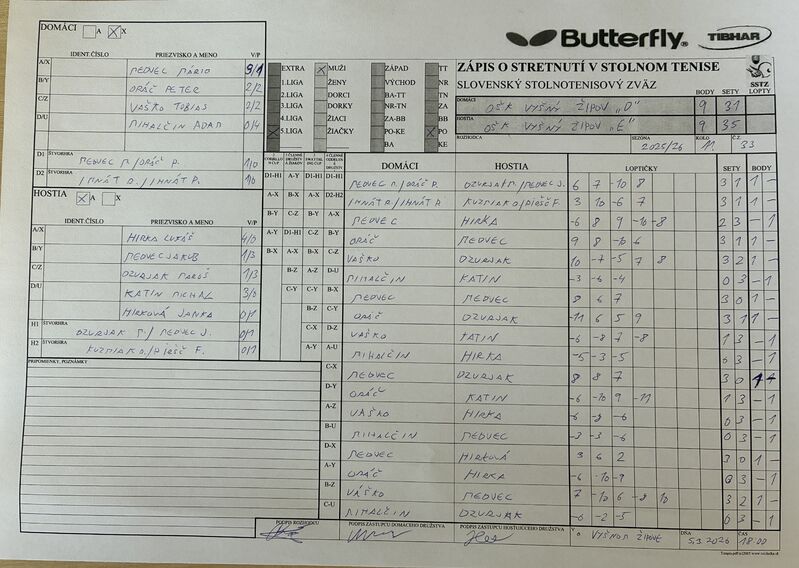 DOMÁCI A X
Butterfly TIBHAR
IDENT.ČÍSLO PRIEZVISKO A MENO V/P
A/X MEDVEC MÁRIO 3/1
B/Y ORÁČ PETER 2/2
C/Z VAŠKO TOBIAS 2/2
D/U MIHALČIN ADAM 0/4
ŠTVORHRA
D1 MEDVEC M./ORÁČ P. 1/0
D2 IHNÁT D./IHNÁT P. 1/0
HOSTIA A X
IDENT.ČÍSLO PRIEZVISKO A MENO V/P
A/X HIRKA LUKÁŠ 4/0
B/Y MEDVEC JAKUB 1/3
C/Z DZURJAK MAROŠ 1/3
D/U KATIN MICHAL 3/0
HIRKOVÁ JANKA 0/1
ŠTVORHRA
H1 DZURJAK M./MEDVEC J. 0/1
H2 KUZMIAK O./PIEŠČ F. 0/1
PRIPOMIENKY, POZNÁMKY
EXTRA MUŽI ZÁPAD TT
1.LIGA ŽENY VÝCHOD NR
2.LIGA DORCI BA-TT TN
3.LIGA DORKY NR-TN ZA
4.LIGA ŽIACI ZA-BB BB
5.LIGA ŽIAČKY PO-KE PO
BA KE
ZÁPIS O STRETNUTÍ V STOLNOM TENISE
SLOVENSKÝ STOLNOTENISOVÝ ZVÄZ
SSTZ
BODY SETY LOPTY
DOMÁCI OŠK VYŠNÝ ŽIPOV „D" 9 31
HOSTIA OŠK VYŠNÝ ŽIPOV „E" 9 35
ROZHODCA SEZÓNA 2025/26 KOLO 11 Č.Z. 33
DOMÁCI HOSTIA LOPTIČKY SETY BODY
D1-H1 A-Y D1-H1 D1-H1 MEDVEC M./ORÁČ P. DZURJAK M./MEDVEC J. 6 7 -10 8 3 1 1 -
A-X B-X A-X D2-H2 IHNÁT D./IHNÁT P. KUZMIAK O./PIEŠČ F. 3 10 -6 7 3 1 1 -
B-Y C-Z B-Y A-X MEDVEC HIRKA -6 8 9 -10 -8 2 3 - 1
A-Y D1-H1 C-Z B-Y ORÁČ MEDVEC 9 8 -10 6 3 1 1 -
B-X A-X B-X C-Z VAŠKO DZURJAK 10 -7 -5 7 8 3 2 1 -
B-Z A-Z D-U MIHALČIN KATIN -3 -6 -4 0 3 - 1
C-Y C-Y B-X MEDVEC MEDVEC 8 6 7 3 0 1 -
B-Z C-Y ORÁČ DZURJAK -11 6 5 9 3 1 1 -
C-X D-Z VAŠKO KATIN -6 -8 7 -8 1 3 - 1
A-Y A-U MIHALČIN HIRKA -5 -3 -5 0 3 - 1
C-X MEDVEC DZURJAK 8 8 7 3 0 1 -
D-Y ORÁČ KATIN -6 -10 9 -11 1 3 - 1
A-Z VAŠKO HIRKA -6 -8 -6 0 3 - 1
B-U MIHALČIN MEDVEC -3 -3 -6 0 3 - 1
D-X MEDVEC HIRKOVÁ 3 6 2 3 0 1 -
A-Y ORÁČ HIRKA -6 -10 -9 0 3 - 1
B-Z VAŠKO MEDVEC 7 -10 6 -8 10 3 2 1 -
C-U MIHALČIN DZURJAK -6 -2 -5 0 3 - 1
PODPIS ROZHODCU PODPIS ZÁSTUPCU DOMÁCEHO DRUŽSTVA PODPIS ZÁSTUPCU HOSŤUJÚCEHO DRUŽSTVA V VYŠNOM ŽIPOVE DŇA 5.3.2026 ČAS 18.00